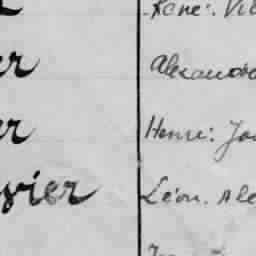 René: Vi
er Alexand
er Henri: Jo
vier Léon. Ale